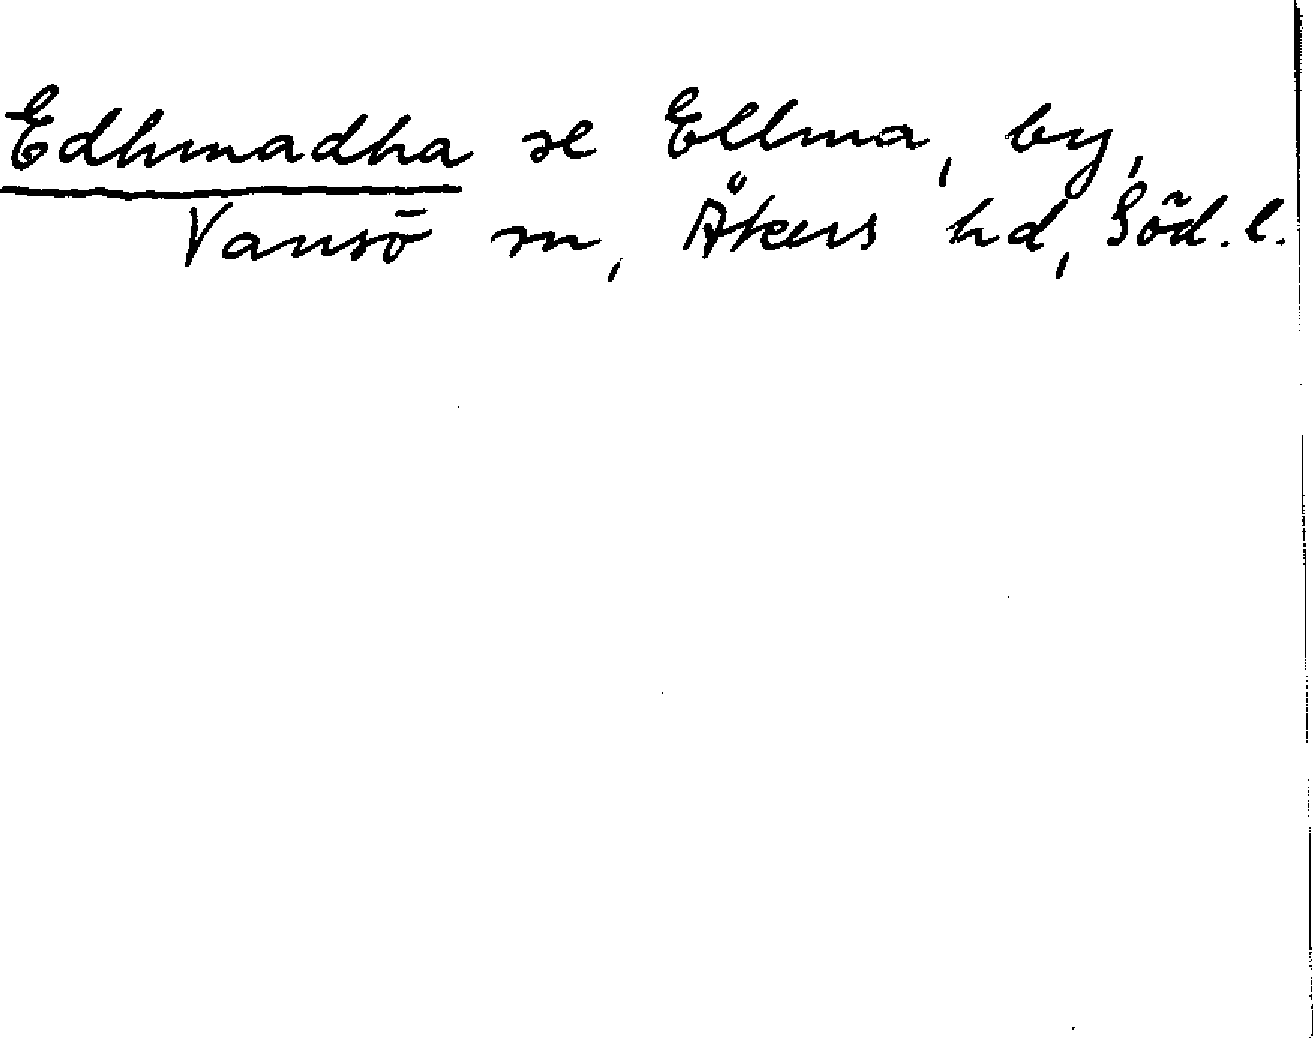 Edhmadha se Ellma, by,
Vansö sn, Åkers hd, Söd. l.